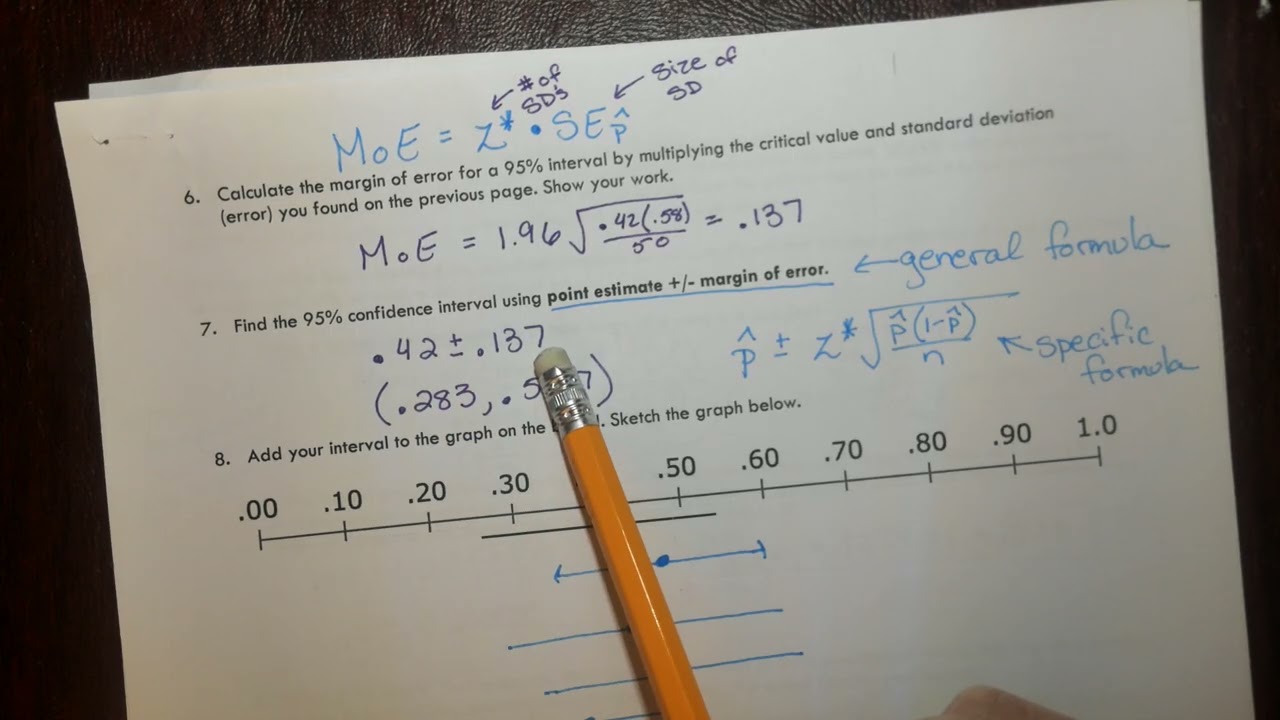 # of SD's
size of SD
MoE = Z* • SE p̂
6. Calculate the margin of error for a 95% interval by multiplying the critical value and standard deviation
(error) you found on the previous page. Show your work.
MoE = 1.96 √(.42(.58)/50) = .137
7. Find the 95% confidence interval using point estimate +/- margin of error.
←general formula
.42 ± .137
p̂ ± Z* √(p̂(1-p̂)/n)
specific formula
(.283, .5 7)
8. Add your interval to the graph on the . Sketch the graph below.
.00 .10 .20 .30 .50 .60 .70 .80 .90 1.0